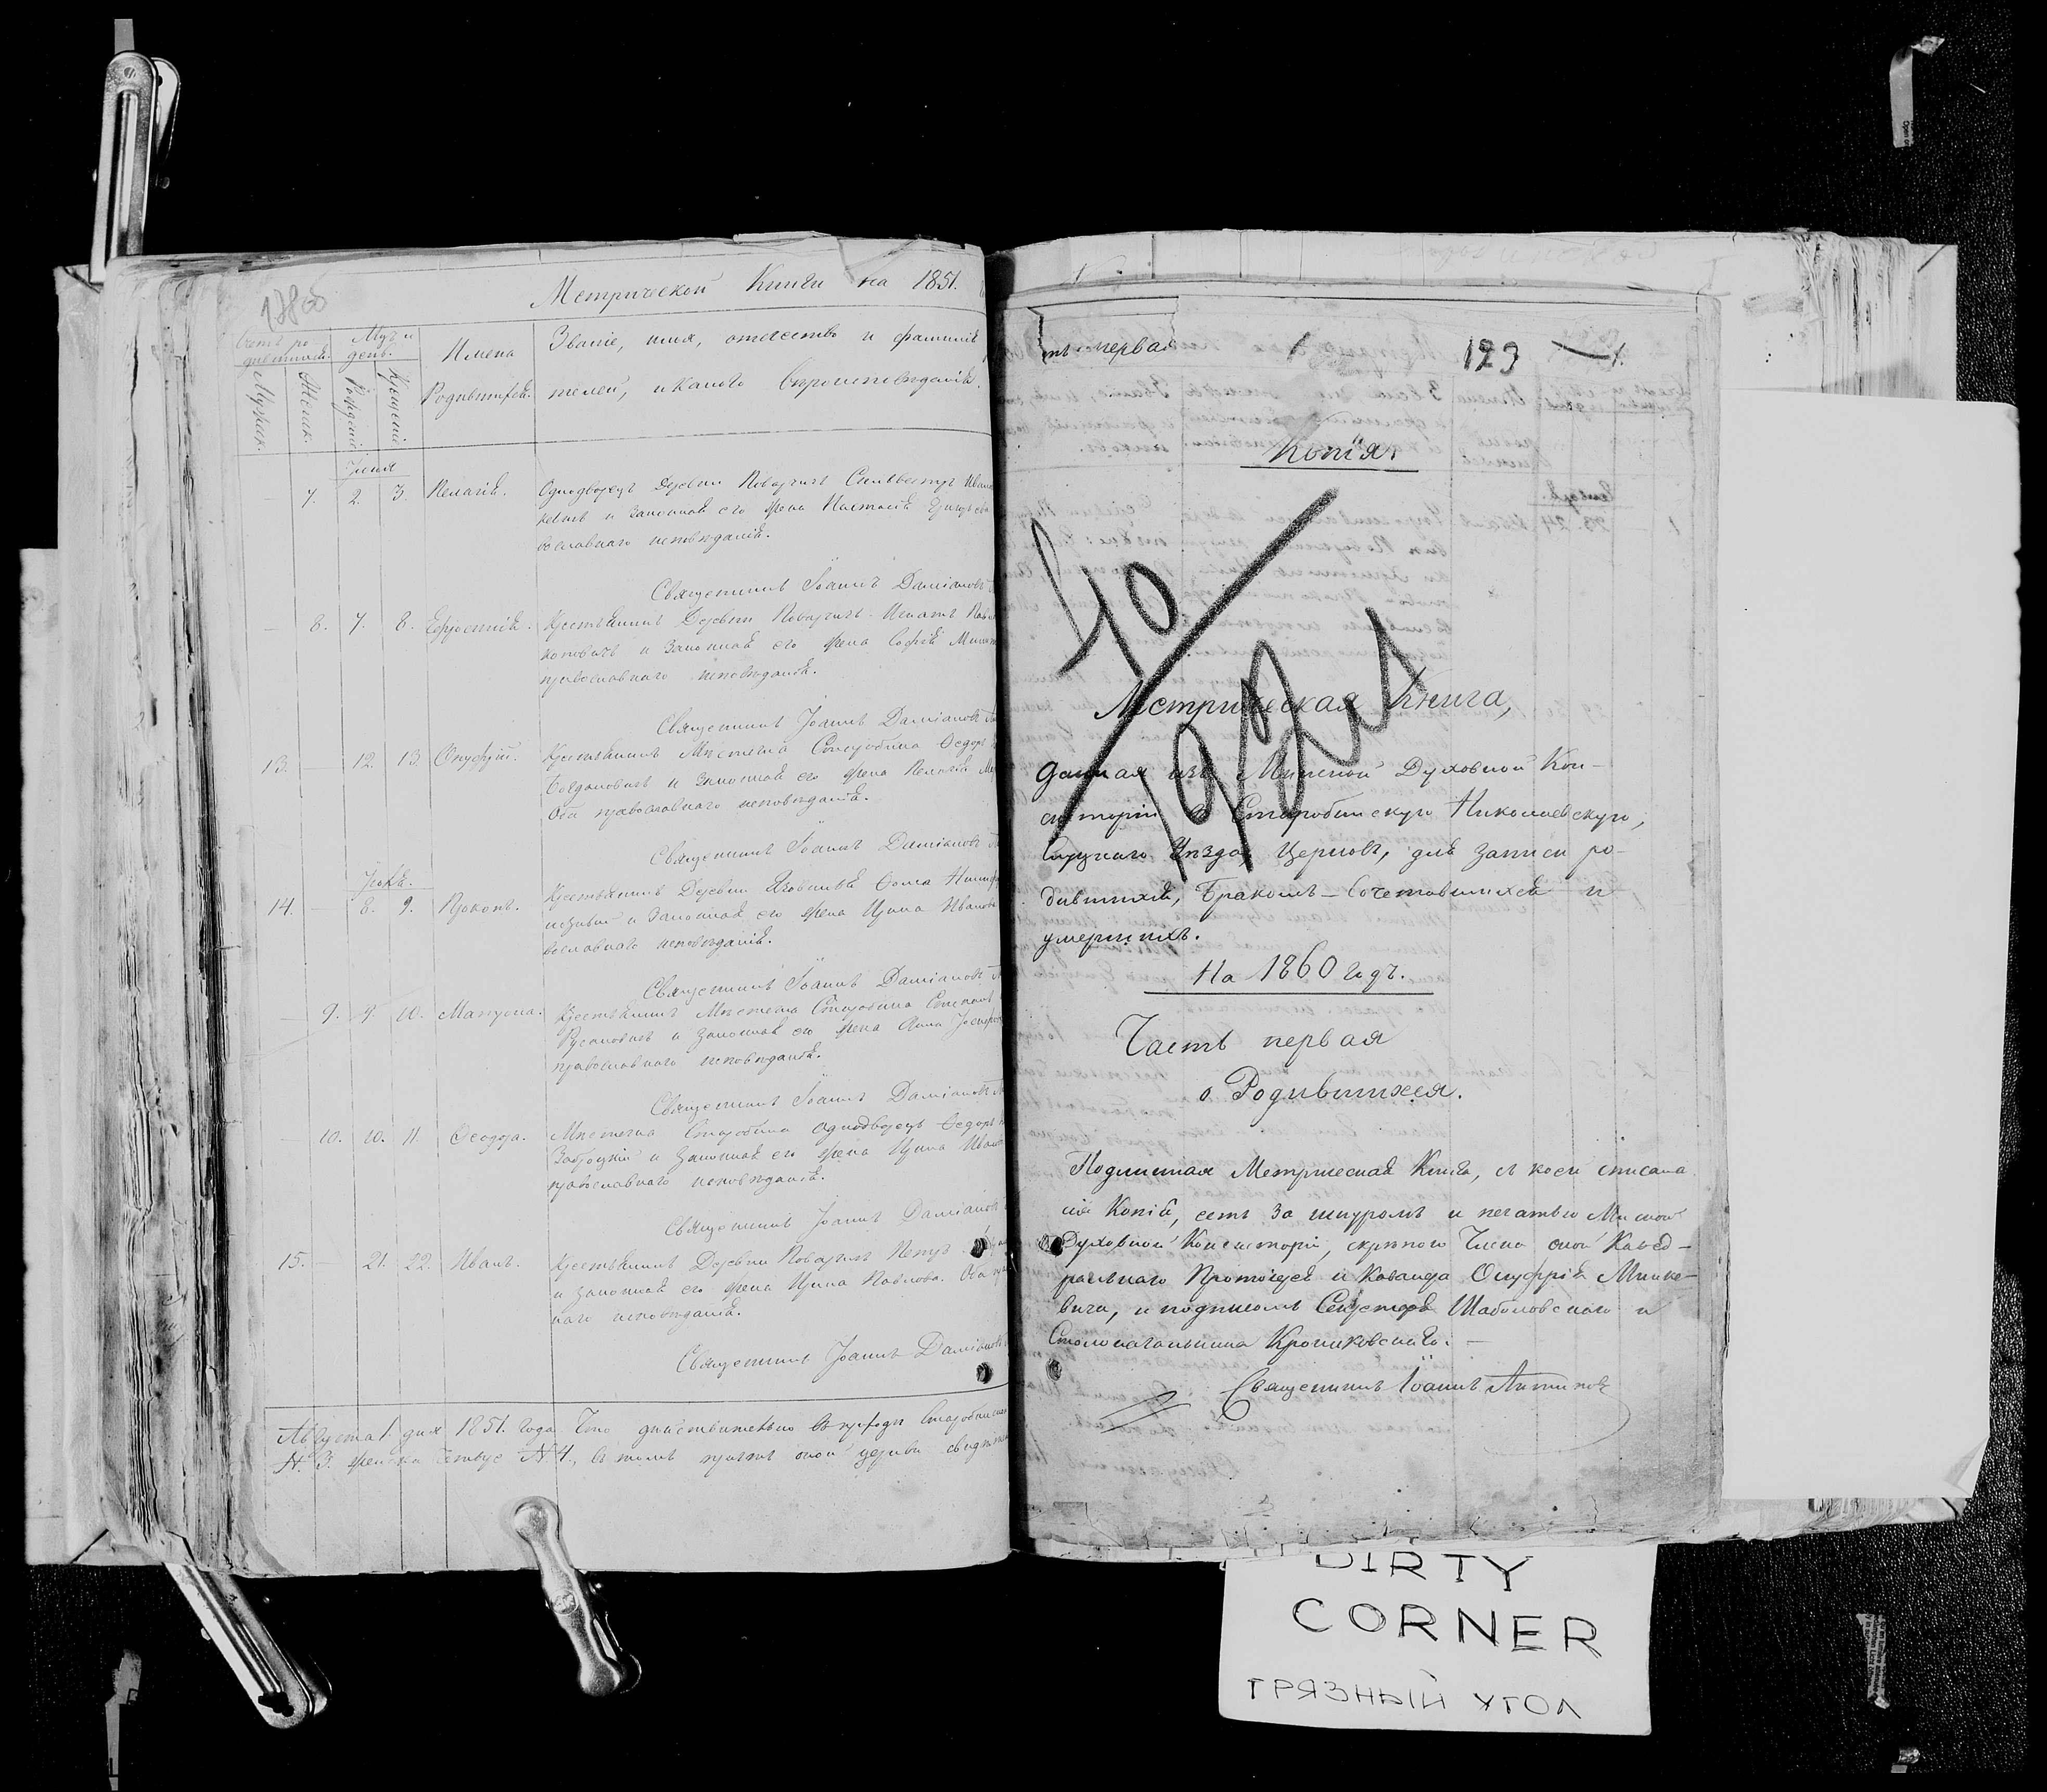 Метрической Книги на 1851.
Счетъ ро-
дившихся.
Мѣс. и
день.
Имена
Родившихся.
Званіе, имя, отчество и фамилія
телей, и какого Вѣроисповѣданія.
Мужск.
Женск.
Рожденія
Крещенія
Іюня
7. 2. 3. Пелагія. Однодворецъ Деревни Поварчичъ Сильвестръ Ивано
и законная его жена Настасія Григорьева
вославнаго исповѣданія.
Священникъ Іоаннъ Даміановъ
8. 7. 8. Ефросинія. Крестьянинъ Деревни Поварчичъ Игнатъ
и законная его жена Софія
православнаго исповѣданія.
Священникъ Іоаннъ Даміановъ
13. 12. 13. Онуфрій. Крестьянинъ Мѣстечка Старобина Ѳедоръ
Богдановичъ и законная его жена Пелагія
Оба православнаго исповѣданія.
Священникъ Іоаннъ Даміановъ
Іюля.
14. 8. 9. Прокопъ. Крестьянинъ Деревни Ѳома
и законная его жена Ирина Иванова
вославнаго исповѣданія.
Священникъ Іоаннъ Даміановъ
9. 9. 10. Матрона. Крестьянинъ Мѣстечка Старобина Степанъ
Русановичъ и законная его жена Анна
православнаго исповѣданія.
Священникъ Іоаннъ Даміановъ
10. 10. 11. Ѳеодора. Мѣстечка Старобина однодворецъ Ѳедоръ
Заброцкій и законная его жена Ирина Иван
православнаго исповѣданія.
Священникъ Іоаннъ Даміановъ
15. 21. 22. Иванъ. Крестьянинъ Деревни Поварчичъ Петръ
и законная его жена Ирина Павлова. Оба
наго исповѣданія.
Священникъ Іоаннъ Даміановъ
Августа 1. дня 1851. года. Что дѣйствительно въ приходѣ Старобинс
№ 3. женска четыре № 4, въ томъ причтъ оной церкви свидѣт
первая
1 123 1.
Копія.
40
1921
Метрическая Книга,
данная изъ Минской Духовной Кон-
систоріи въ Старобинскую Николаевскую,
Слуцкаго Уѣзда, Церковь, для записи ро-
дившихся, Бракомъ-Сочетавшихся и
умершихъ.
На 1860 годъ.
Часть первая
о Родившихся.
Подлинная Метрическая Книга, съ коей списана
сія Копія, есть за шнуромъ и печатью Минской
Духовной Консисторіи, скрѣпою Члена оной Каѳед-
ральнаго Протоіерея и Кавалера Онуфрія Минке-
вича, и подписомъ Секретаря Шаболовскаго и
Столоначальника Крониковскаго. —
Священникъ Іоаннъ
DIRTY
CORNER
ГРЯЗНЫЙ УГОЛ